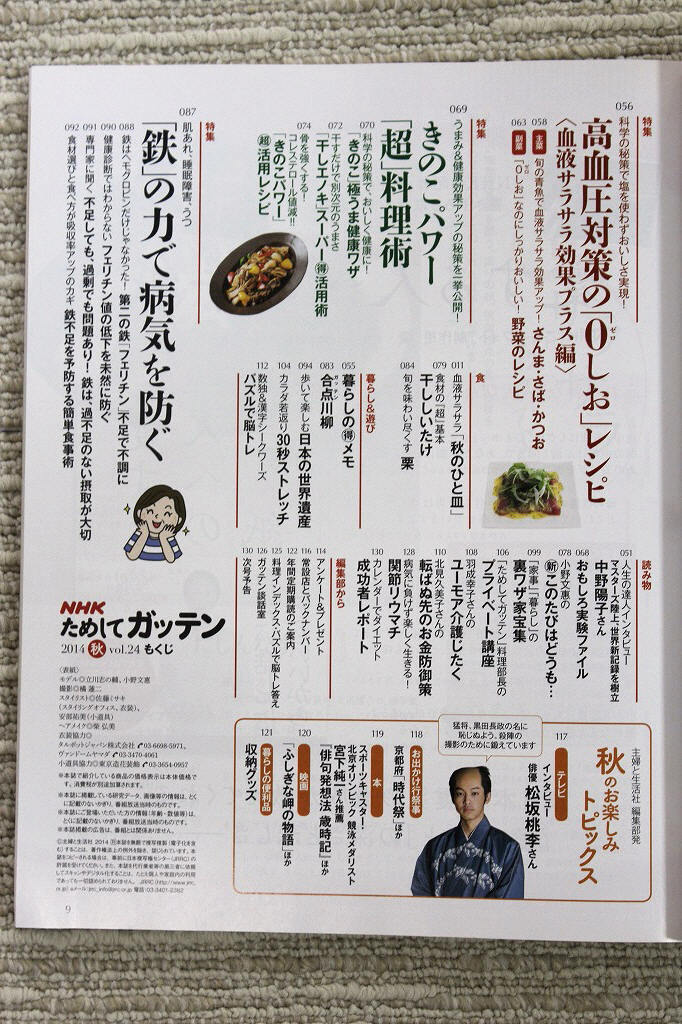 特集
056
科学の秘策で塩を使わずおいしさ実現！
高血圧対策の「0しお」レシピ
ゼロ
〈血液サラサラ効果プラス編〉
058
主菜
旬の青魚で血液サラサラ効果アップ！ さんま・さば・かつお
063
副菜
「0しお」なのにしっかりおいしい！ 野菜のレシピ
特集
069
うまみ&健康効果アップの秘策を一挙公開！
きのこパワー
「超」料理術
070
科学の秘策で、おいしく健康に！
「きのこ」極うま健康ワザ
072
干すだけで別次元のうまさ
「干しエノキ」スーパー㊝活用術
074
骨を強くする！
コレステロール値減!!
「きのこパワー」
超活用レシピ
特集
087
肌あれ、睡眠障害、うつ
「鉄」の力で病気を防ぐ
088
鉄はヘモグロビンだけじゃなかった！ 第二の鉄「フェリチン」不足で不調に
090
健康診断ではわからない フェリチン値の低下を未然に防ぐ
091
専門家に聞く 不足しても、過剰でも問題あり！ 鉄は、過不足のない摂取が大切
092
食材選びと食べ方が吸収率アップのカギ 鉄不足を予防する簡単食事術
食
011
血液サラサラ「秋のひと皿」
079
食材の「超」基本
干ししいたけ
084
旬を味わい尽くす 栗
暮らし&遊び
055
暮らしの㊝メモ
083
合点川柳
094
歩いて楽しむ 日本の世界遺産
104
カラダ若返り 30秒ストレッチ
112
数独&漢字シークワーズ
パズルで脳トレ
読み物
051
人生の達人インタビュー
マスターズ陸上、世界新記録を樹立
中野陽子さん
068
おもしろ実験ファイル
078
小野文惠の
㊟このたびはどうも…
099
「家事」「暮らし」の
裏ワザ家宝集
106
「ためしてガッテン」料理部長の
プライベート講座
108
羽成幸子さんの
ユーモア介護じたく
110
北見久美子さんの
転ばぬ先のお金防御策
128
病気に負けず楽しく生きる！
関節リウマチ
130
カレンダーでダイエット
成功者レポート
編集部から
114
アンケート&プレゼント
116
常設店とバックナンバー
122
年間定期購読のご案内
125
料理インデックス・パズルで脳トレ答え
126
ガッテン談話室
130
次号予告
NHK
ためしてガッテン
2014 秋 vol.24 もくじ
〈表紙〉
モデル◎立川志の輔、小野文惠
撮影◎橘 蓮二
スタイリスト◎佐藤ミサキ
(スタイリングオフィス、衣装)、
安部祐美(小道具)
ヘアメイク◎柴 弘美
衣装協力◎
タルボットジャパン株式会社 ✆03-6698-5971、
ヴァンドームヤマダ ✆03-3470-4061
小道具協力◎東京造花装飾 ✆03-3654-0957
※本誌で紹介している商品の価格表示は本体価格です。消費税が別途加算されます。
※本誌に掲載している研究データ、画像等の情報は、とくに記載のないかぎり、番組放送当時のものです。
※本誌にご登場いただいた方の情報(年齢・数値等)は、とくに記載のないかぎり、番組放送当時のものです。
※本誌掲載の広告は、番組とは関係ありません。
主婦と生活社 編集部発
秋のお楽しみ
トピックス
117
テレビ
インタビュー
俳優 松坂桃李さん
猛将、黒田長政の名に
恥じぬよう、殺陣の
撮影のために鍛えています
118
お出かけ行祭事
京都府「時代祭」ほか
119
本
スポーツキャスター
北京オリンピック競泳メダリスト
宮下純一さん推薦
『俳句発想法 歳時記』ほか
120
映画
『ふしぎな岬の物語』ほか
121
暮らしの便利品
収納グッズ
9